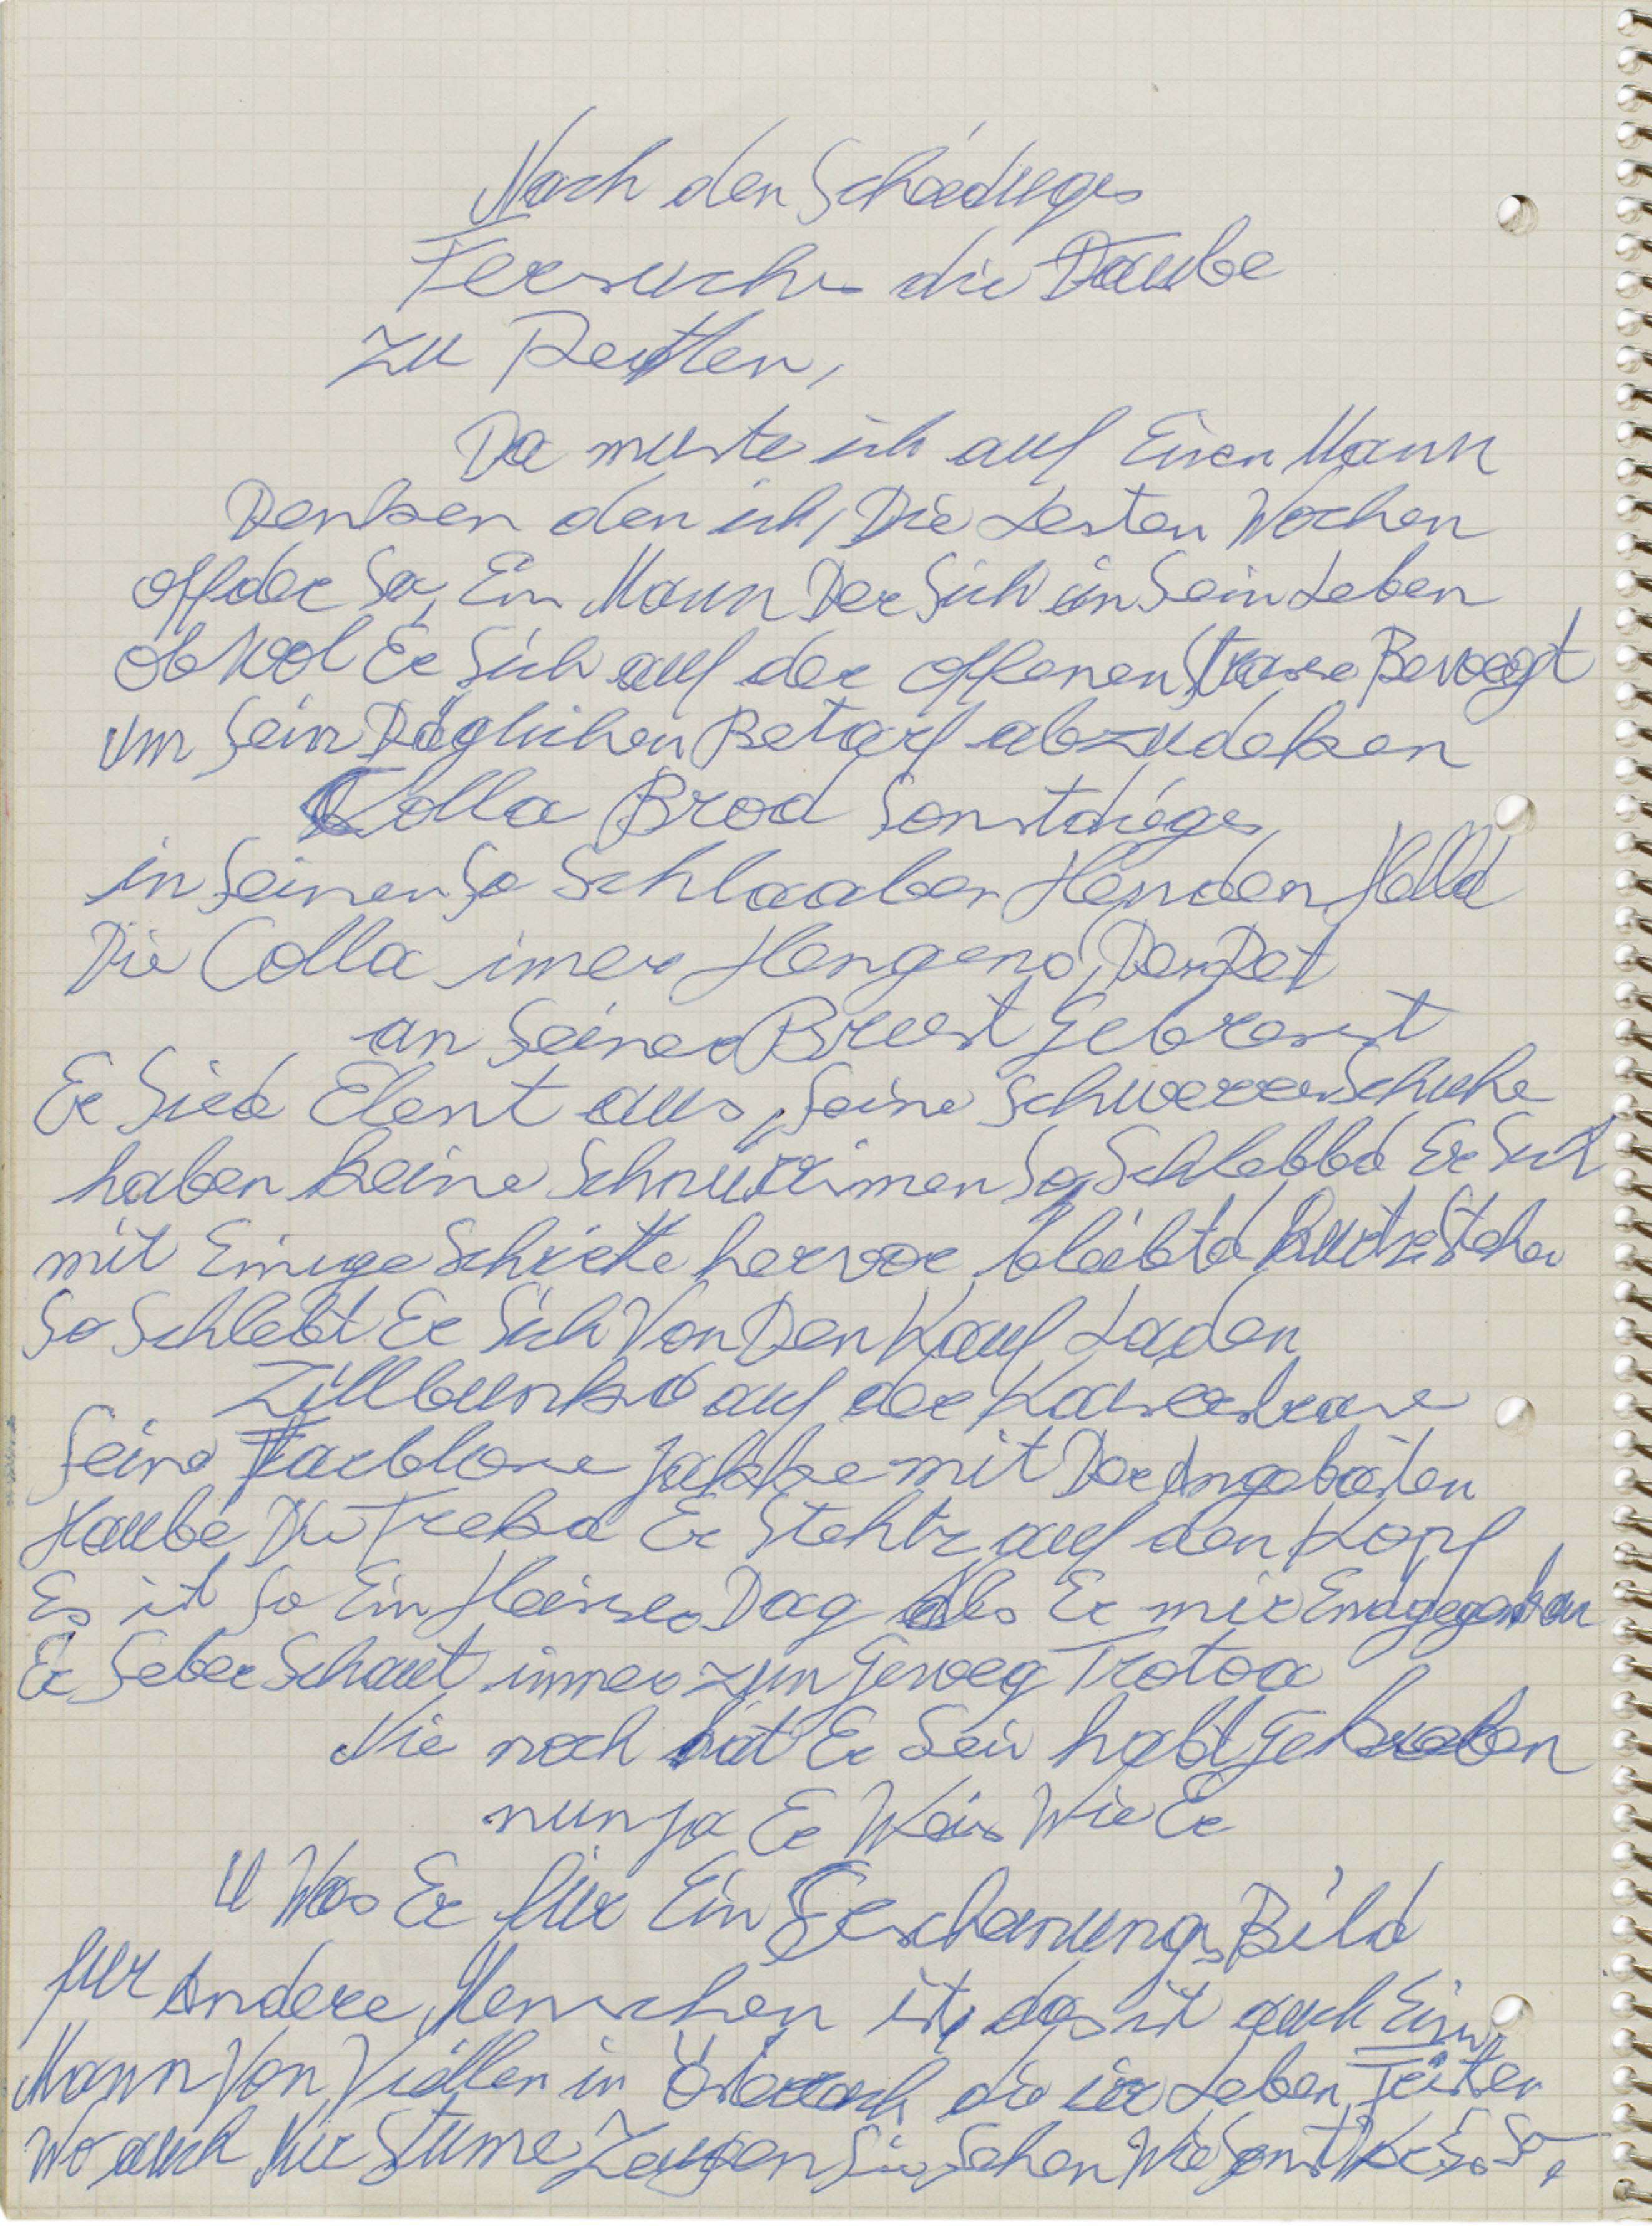 Nach den Schädiges
Fersuche die Daube
zu Retten,
Da muste ich auf Einen Mann
Denken den ich, Die Lesten Wochen
offder Sa, Ein Mann Der Sich in Sein Leben
obwol Er Sich auf der offenen Strase Bewegt
um Sein Däglichen Betarf abzudeken
Colla Brod Sonstdiges
in Seinen So Schlaaben Henden Helld
Die Colla imer Hengend, Der Det
an Seiner Brust Gebrest
Er Sied Elent aus, Seine Schwerren Schuhe
haben keine Schnürrimen So Schlebbd Er Sich
mit Einige Schritte hervor, bleibtd kurtz Stehen
So Schlebt Er Sich Von Den Kauf Laden
Zillbunkd auf der Kaiserstrase
Seine Farblose Jakke mit Der Angebäiten
Haube Die Trekd Er Stehtz auf den Kopf
Es ist So Ein Heiser Dag als Er mir Endgegenkam
Er Selber Schaut immer zum Geweg Trotoa
Nie noch hat Er Sein habt Gehoben
nun ja Er Weis Wie Er
u Was Er für Ein Erscheinungs Bild
für Andere Menschen ist, das ist auch Ein
Mann Von Viellen in Österreich die ir Leben Feisten
Wo auch Nir Stume Zeugen Sie Sehen Wie Sonst So,